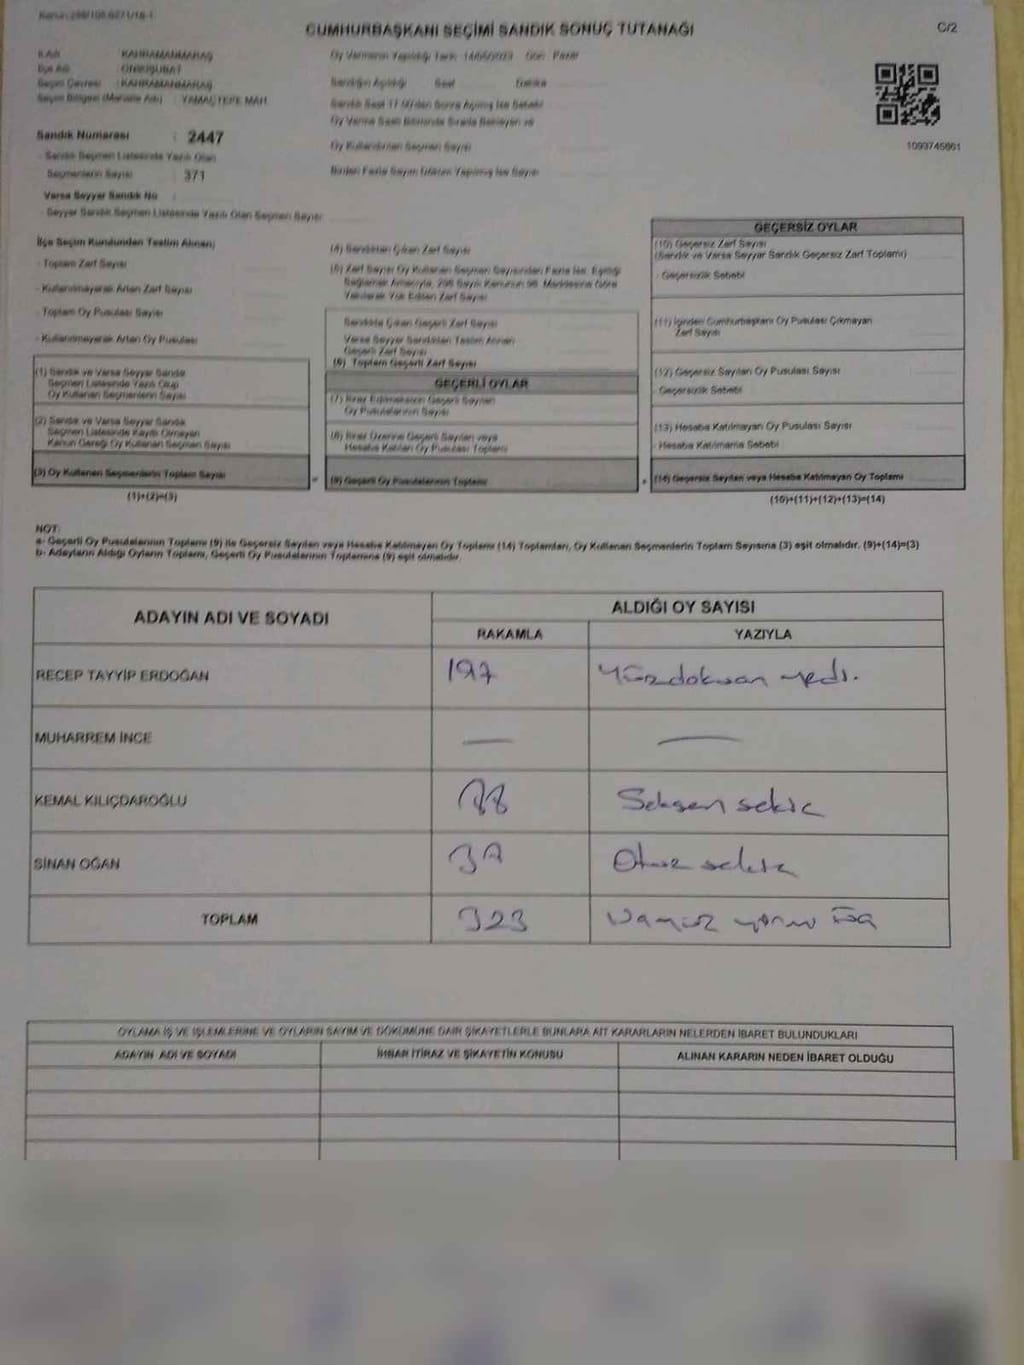 CUMHURBAŞKANI SEÇİMİ SANDIK SONUÇ TUTANAĞI
C/2
İl Adı : KAHRAMANMARAŞ
İlçe Adı : ONİKİŞUBAT
Seçim Çevresi : KAHRAMANMARAŞ
Seçim Bölgesi (Mahalle Adı) : YAMAÇTEPE MAH.
Sandık Numarası : 2447
- Sandık Seçmen Listesinde Yazılı Olan
Seçmenlerin Sayısı : 371
Varsa Seyyar Sandık No :
- Seyyar Sandık Seçmen Listesinde Yazılı Olan Seçmen Sayısı
Oy Vermenin Yapıldığı Tarih: 14/05/2023 Gün: Pazar
Sandığın Açıldığı Saat Dakika
Sandık Saat 17.00'den Sonra Açılmış İse Sebebi
Oy Verme Saati Bitiminde Sırada Bekleyen ve
Oy Kullandırılan Seçmen Sayısı
Birden Fazla Sayım Döküm Yapılmış İse Sayısı
1093745861
İlçe Seçim Kurulundan Teslim Alınan;
- Toplam Zarf Sayısı
- Kullanılmayarak Artan Zarf Sayısı
- Toplam Oy Pusulası Sayısı
- Kullanılmayarak Artan Oy Pusulası
(1) Sandık ve Varsa Seyyar Sandık
Seçmen Listesinde Yazılı Olup
Oy Kullanan Seçmenlerin Sayısı
(2) Sandık ve Varsa Seyyar Sandık
Seçmen Listesinde Kayıtlı Olmayan
Kanun Gereği Oy Kullanan Seçmen Sayısı
(3) Oy Kullanan Seçmenlerin Toplam Sayısı
(1)+(2)=(3)
(4) Sandıktan Çıkan Zarf Sayısı
(5) Zarf Sayısı Oy Kullanan Seçmen Sayısından Fazla İse, Eşitliği
Sağlamak Amacıyla, 298 Sayılı Kanunun 98. Maddesine Göre
Yakılarak Yok Edilen Zarf Sayısı
Sandıkta Çıkan Geçerli Zarf Sayısı
Varsa Seyyar Sandıktan Teslim Alınan
Geçerli Zarf Sayısı
(6) Toplam Geçerli Zarf Sayısı
GEÇERLİ OYLAR
(7) İtiraz Edilmeksizin Geçerli Sayılan
Oy Pusulalarının Sayısı
(8) İtiraz Üzerine Geçerli Sayılan veya
Hesaba Katılan Oy Pusulası Toplamı
(9) Geçerli Oy Pusulalarının Toplamı
GEÇERSİZ OYLAR
(10) Geçersiz Zarf Sayısı
(Sandık ve Varsa Seyyar Sandık Geçersiz Zarf Toplamı)
- Geçersizlik Sebebi
(11) İçinden Cumhurbaşkanı Oy Pusulası Çıkmayan
Zarf Sayısı
(12) Geçersiz Sayılan Oy Pusulası Sayısı
- Geçersizlik Sebebi
(13) Hesaba Katılmayan Oy Pusulası Sayısı
- Hesaba Katılmama Sebebi
(14) Geçersiz Sayılan veya Hesaba Katılmayan Oy Toplamı
(10)+(11)+(12)+(13)=(14)
NOT:
a- Geçerli Oy Pusulalarının Toplamı (9) ile Geçersiz Sayılan veya Hesaba Katılmayan Oy Toplamı (14) Toplamları, Oy Kullanan Seçmenlerin Toplam Sayısına (3) eşit olmalıdır. (9)+(14)=(3)
b- Adayların Aldığı Oyların Toplamı, Geçerli Oy Pusulalarının Toplamına (9) eşit olmalıdır.
ADAYIN ADI VE SOYADI
ALDIĞI OY SAYISI
RAKAMLA YAZIYLA
RECEP TAYYİP ERDOĞAN 197 Yüzdoksan yedi.
MUHARREM İNCE — —
KEMAL KILIÇDAROĞLU 88 Seksen sekiz
SİNAN OĞAN Otuz sekiz
TOPLAM 323 üç
OYLAMA İŞ VE İŞLEMLERİNE VE OYLARIN SAYIM VE DÖKÜMÜNE DAİR ŞİKAYETLERLE BUNLARA AİT KARARLARIN NELERDEN İBARET BULUNDUKLARI
ADAYIN ADI VE SOYADI İHBAR İTİRAZ VE ŞİKAYETİN KONUSU ALINAN KARARIN NEDEN İBARET OLDUĞU